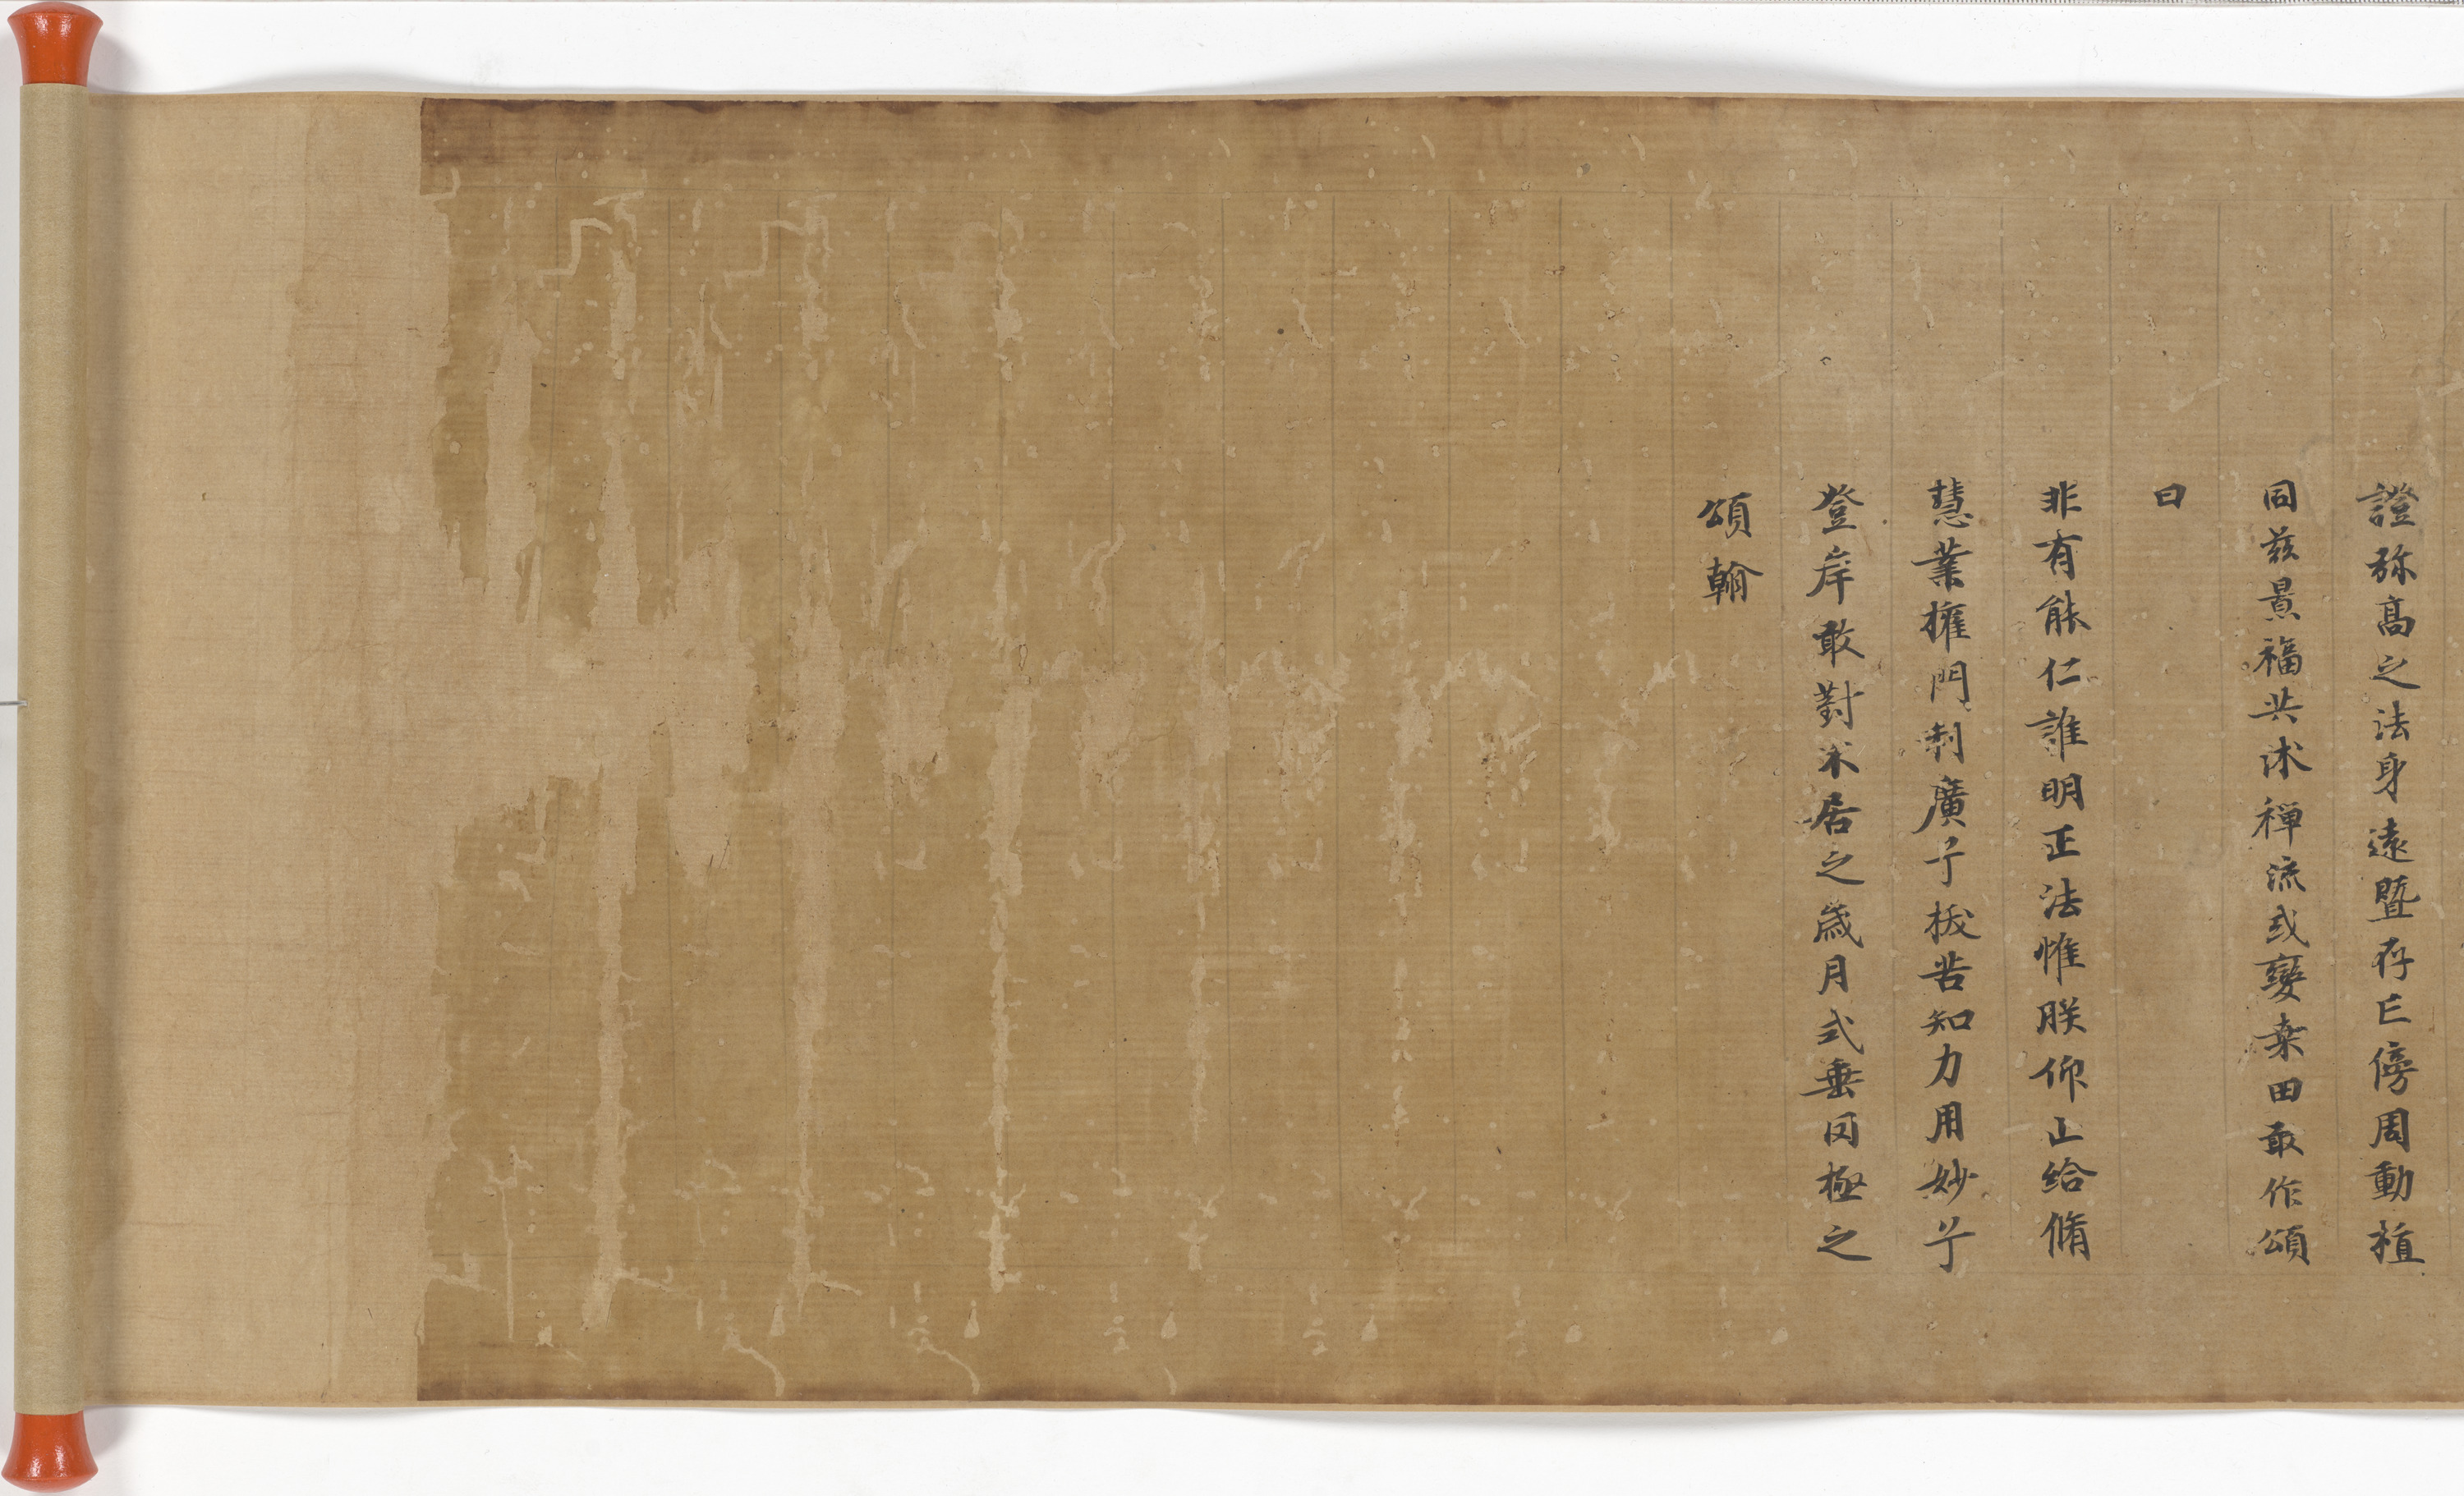 證弥高之法身遠曁存亡傍周動植
同茲景福共沐禅流或變桒田敢作頌
曰
非有能仁誰明正法惟朕仰止給脩
慧業權門利廣兮拔苦知力用妙兮
登岸敢對居之歳月式垂罔極之
頌翰